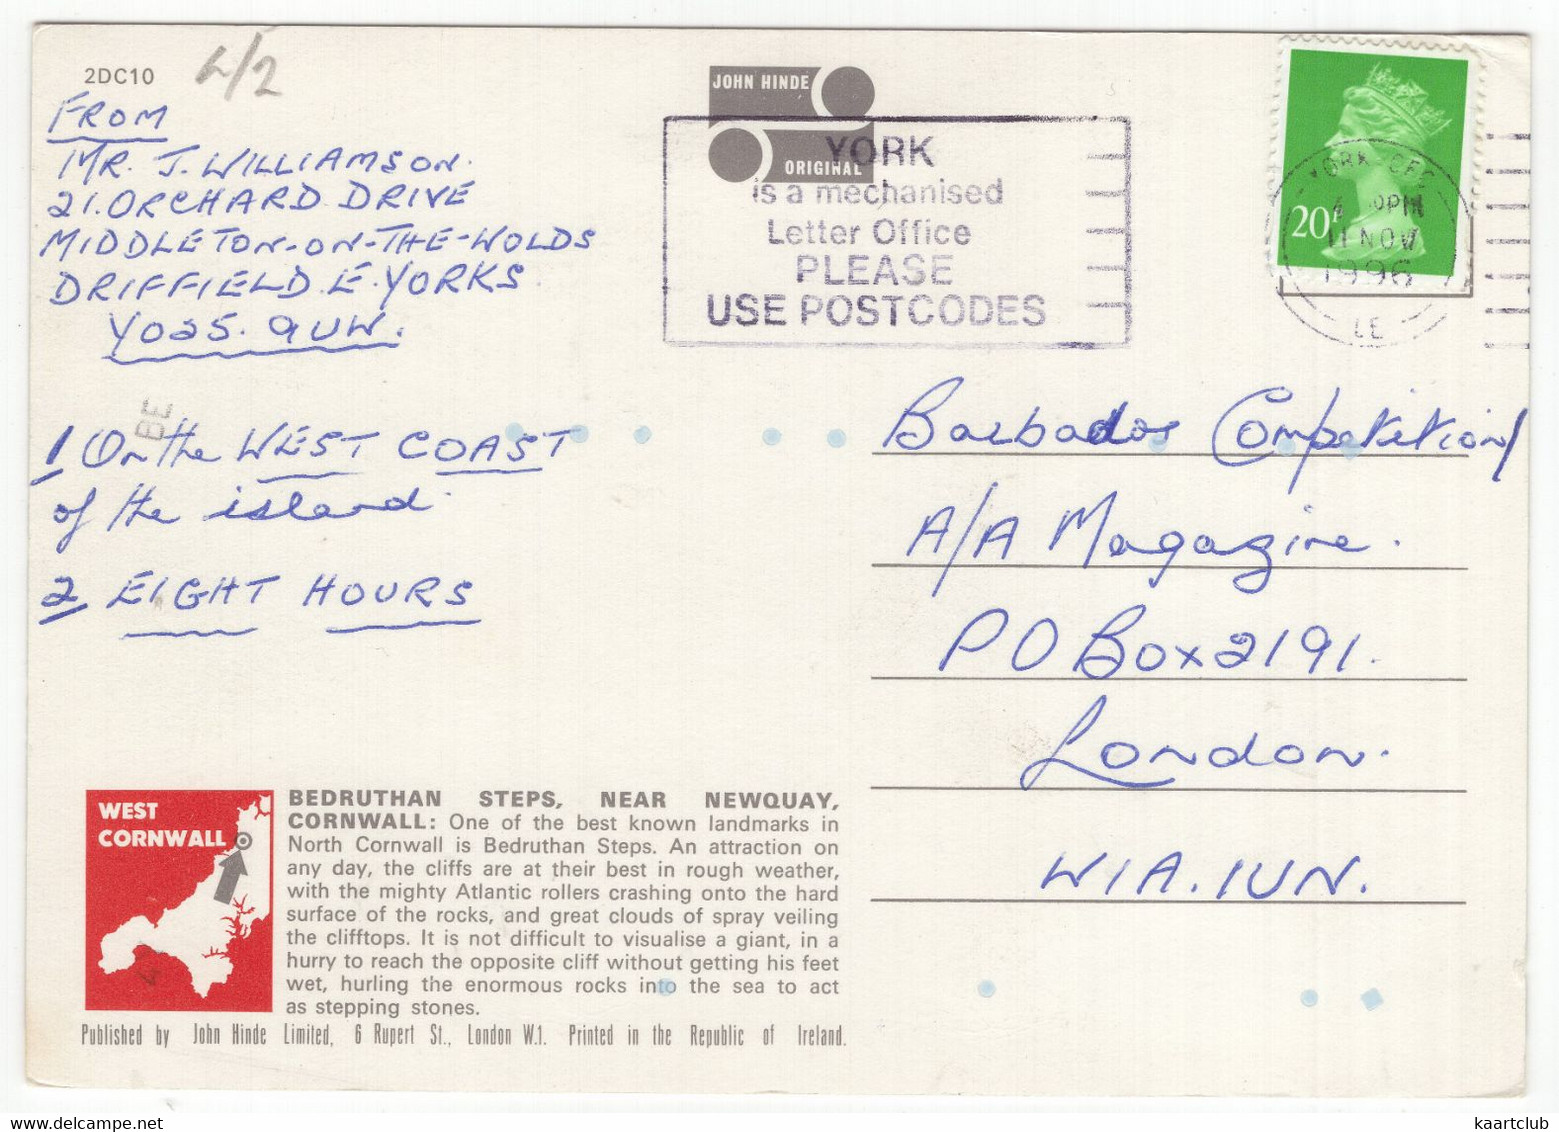 2DC10
4/2
FROM
MR. J. WILLIAMSON.
21. ORCHARD DRIVE
MIDDLETON-ON-THE-WOLDS
DRIFFIELD. E. YORKS.
YO25. 9UW.
JOHN HINDE
ORIGINAL
YORK
is a mechanised
Letter Office
PLEASE
USE POSTCODES
20P
YORK
PM
11 NOV
1996
LE
BE
1 On the WEST COAST
of the island.
2 EIGHT HOURS
Barbados Competition
A/A Magazine.
PO Box 2191.
London.
W1A. 1UN.
WEST
CORNWALL
BEDRUTHAN STEPS, NEAR NEWQUAY,
CORNWALL: One of the best known landmarks in
North Cornwall is Bedruthan Steps. An attraction on
any day, the cliffs are at their best in rough weather,
with the mighty Atlantic rollers crashing onto the hard
surface of the rocks, and great clouds of spray veiling
the clifftops. It is not difficult to visualise a giant, in a
hurry to reach the opposite cliff without getting his feet
wet, hurling the enormous rocks into the sea to act
as stepping stones.
Published by John Hinde Limited, 6 Rupert St., London W.1. Printed in the Republic of Ireland.
kaartclub